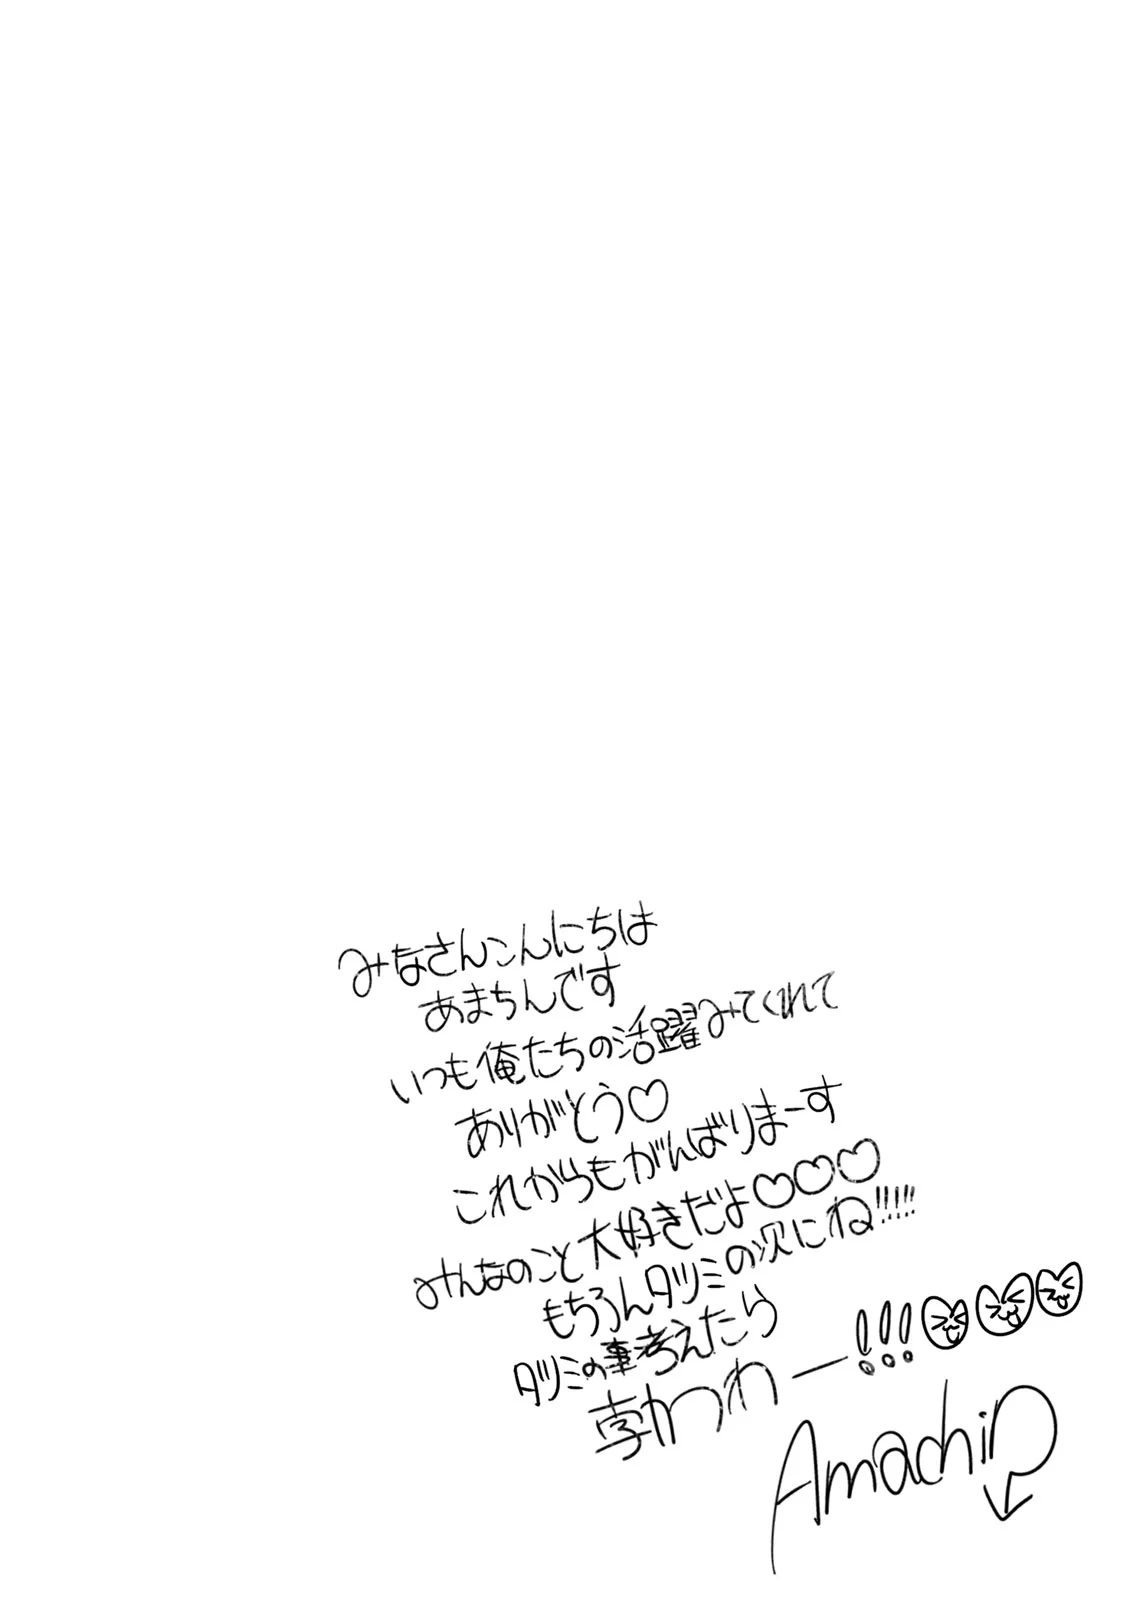 みなさんこんにちは
あまちんです
いつも俺たちの活躍みてくれて
ありがとう♡
これからもがんばりまーす
みんなのこと大好きだよ♡♡♡
もちろんタツミの次にね!!!!!
タツミの事考えたら
かつわー!!!
Amachin